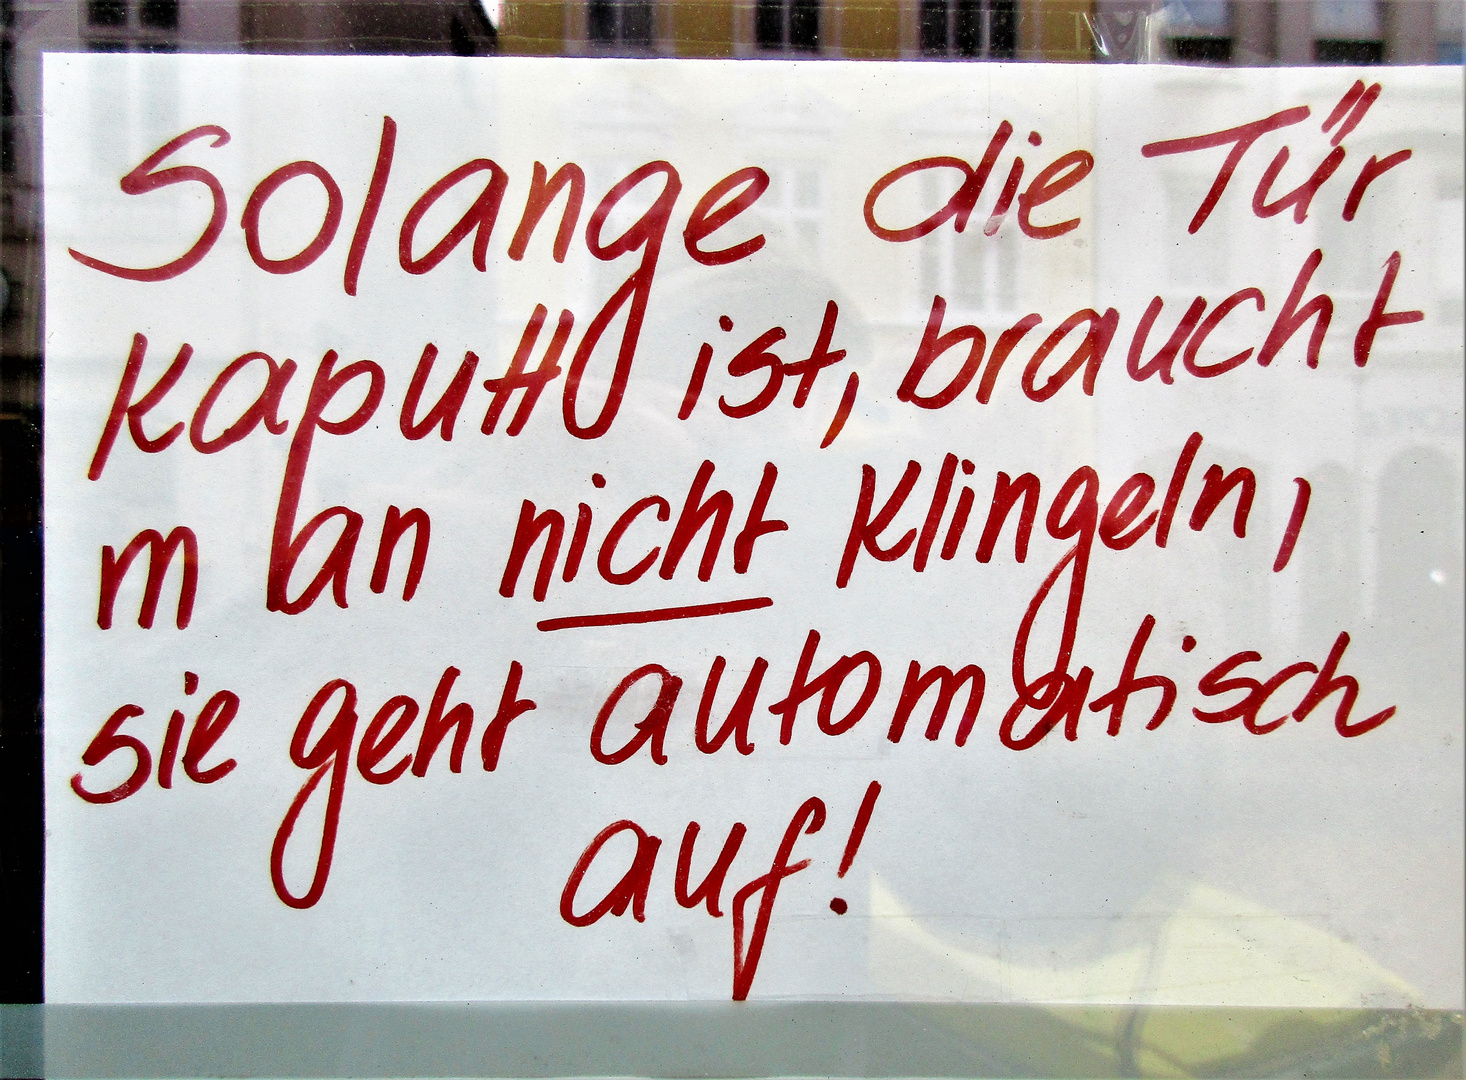 Solange die Tür
kaputt ist, braucht
man nicht klingeln,
sie geht automatisch
auf!